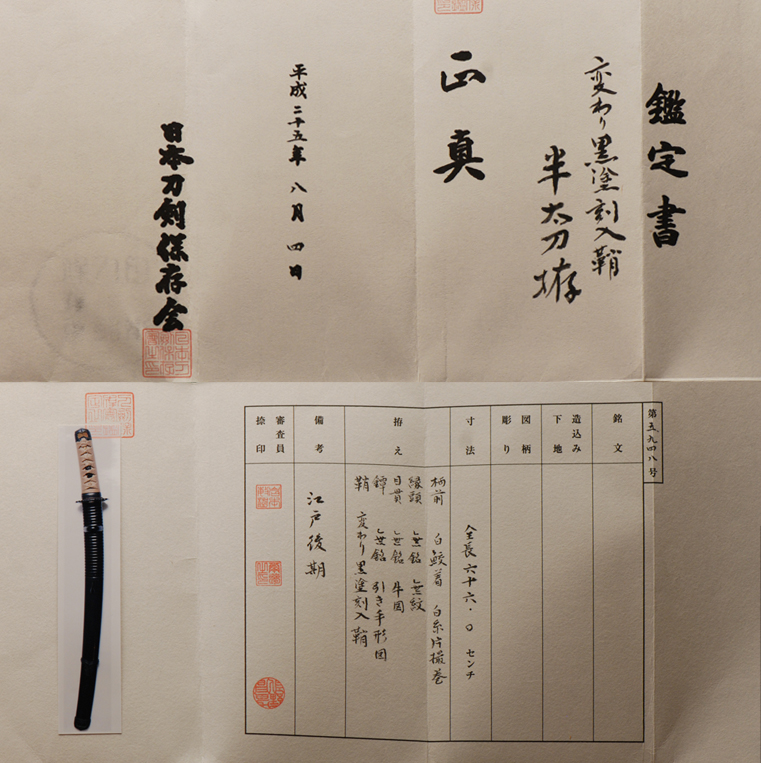 鑑定書
変わり黒塗刻入鞘
半太刀拵
正真
平成二十五年八月四日
日本刀剣保存会
第五九四八号
銘文
造込み
下地
図柄
彫り
寸法
全長六十六・〇センチ
拵え
柄前 白鮫着 白糸片撮巻
縁頭 無銘 無紋
目貫 無銘 牛図
鐔 無銘 引き手形図
鞘 変わり黒塗刻入鞘
備考
江戸後期
審査員
捺印